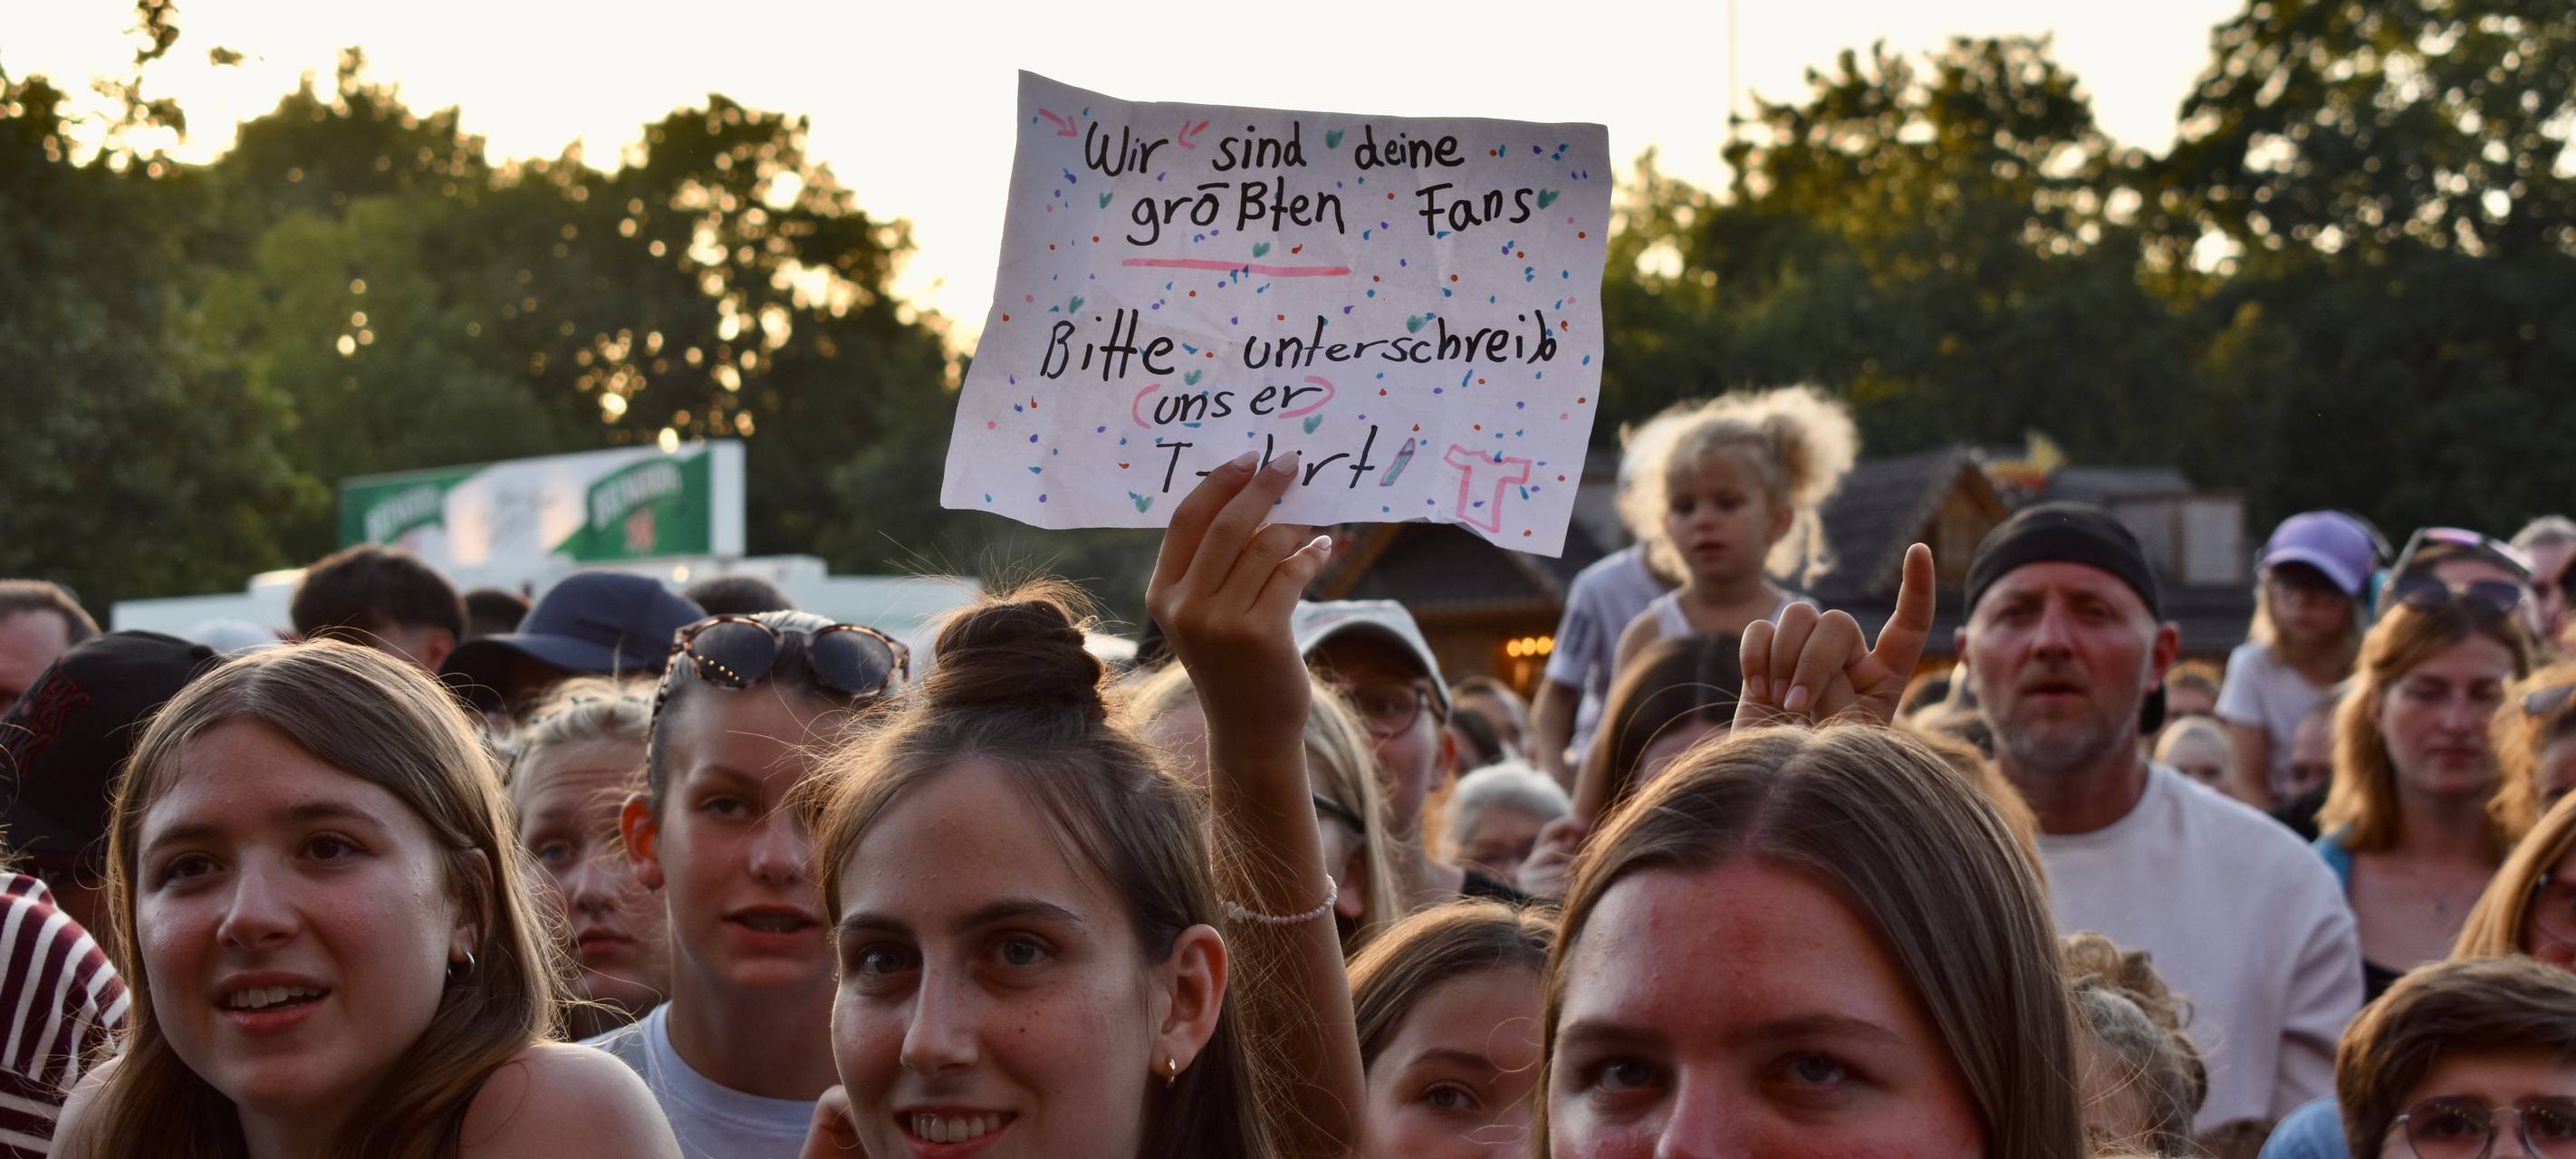 Wir sind deine
größten Fans
Bitte unterschreib
(unser)
T-shirt